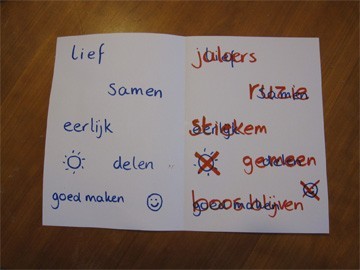 lief
samen
eerlijk
delen
goed maken
lief
jaloers
samen
ruzie
eerlijk
stiekem
delen
gemeen
goed maken
boos blijven